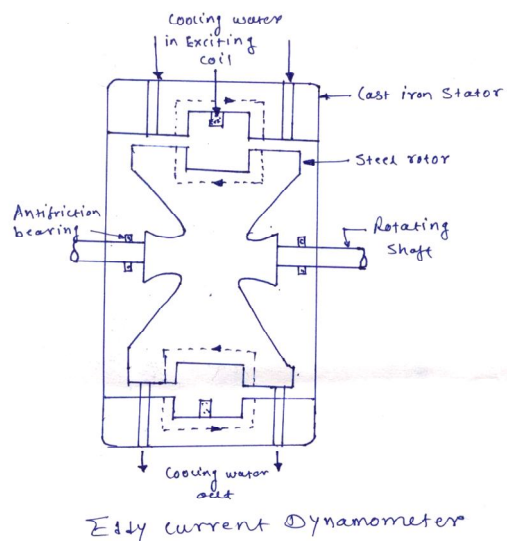 Cooling water
in Exciting
coil
Cast iron Stator
Steel rotor
Antifriction
bearing
Rotating
Shaft
Cooling water
out
Eddy current Dynamometer